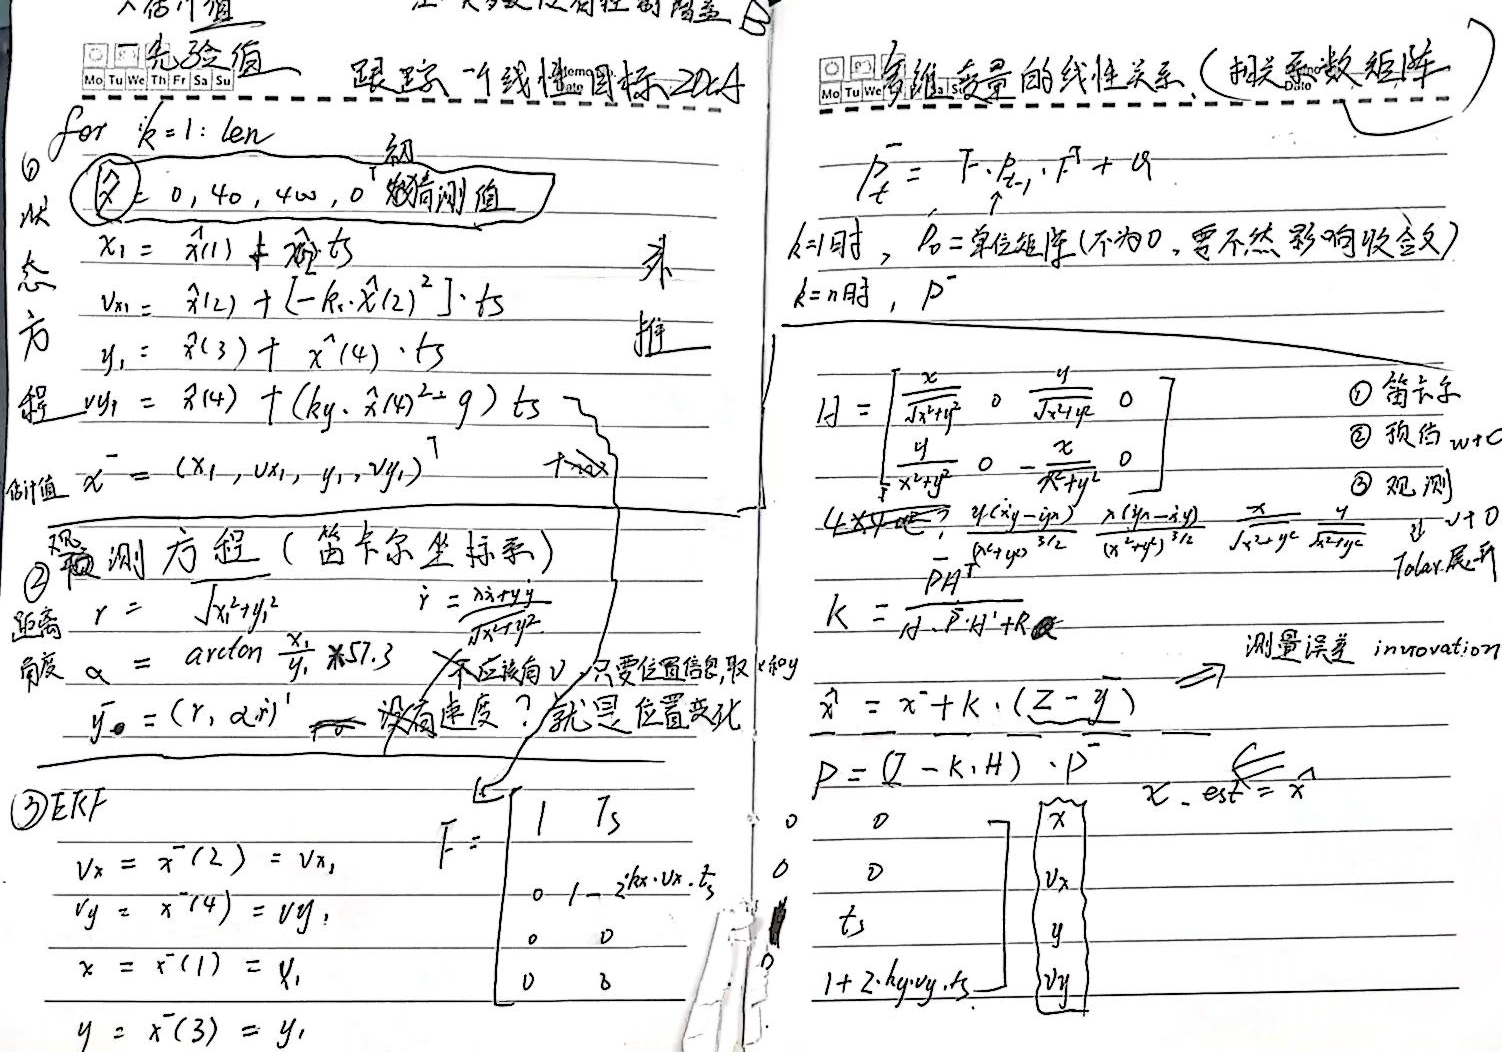 估计值
先验值
Mo Tu We Th Fr Sa Su
Memo
Date
跟踪一个线性目标
for k=1:len
① 状态方程
x̂ = 0, 40, 400, 0ᵀ 初 猜测值
x₁ = x̂(1) + x̂2 ts
vx₁ = x̂(2) + [-kx·x̂(2)²]·ts
y₁ = x̂(3) + x̂(4)·ts
vy₁ = x̂(4) + (ky·x̂(4)² - g) ts
外推
估计值 x⁻ = (x₁, vx₁, y₁, vy₁)ᵀ
② 观测方程 (笛卡尔坐标系)
距离 r = √x₁²+y₁² ṙ = (xẋ+yẏ)/√x²+y²
角度 α = arctan x₁/y₁ *57.3
不应该有v,只要位置信息,取x和y
y⁻ = (r, α, ṙ)' 没有速度?就是位置变化
③ EKF
vx = x⁻(2) = vx₁
vy = x⁻(4) = vy₁
x = x⁻(1) = x₁
y = x⁻(3) = y₁
F = [ 1 Ts 0 0
0 1-2·kx·vx·ts 0 0
0 0 1 ts
0 0 0 1+2·ky·vy·ts ] x vx y vy
Mo Tu We Sa Su
Date
多维变量的线性关系 (相关系数矩阵)
P⁻t = F·Pt-1·Fᵀ + Q
k=1时, P₀=单位矩阵(不为0,要不然影响收敛)
k=n时, P⁻
H = [ x/√x²+y² 0 y/√x²+y² 0
y/x²+y² 0 -x/x²+y² 0 ]
y(ẋy-ẏx)/(x²+y²)^3/2 x(ẏx-ẋy)/(x²+y²)^3/2 x/√x²+y² y/√x²+y²
① 笛卡尔
② 预估 w+0
③ 观测
v+0
Tolar展开
K = P⁻Hᵀ/H·P⁻·H'+R
测量误差 innovation
x̂ = x⁻+K·(Z-y⁻)
P = (I-K·H)·P⁻
x_est = x̂